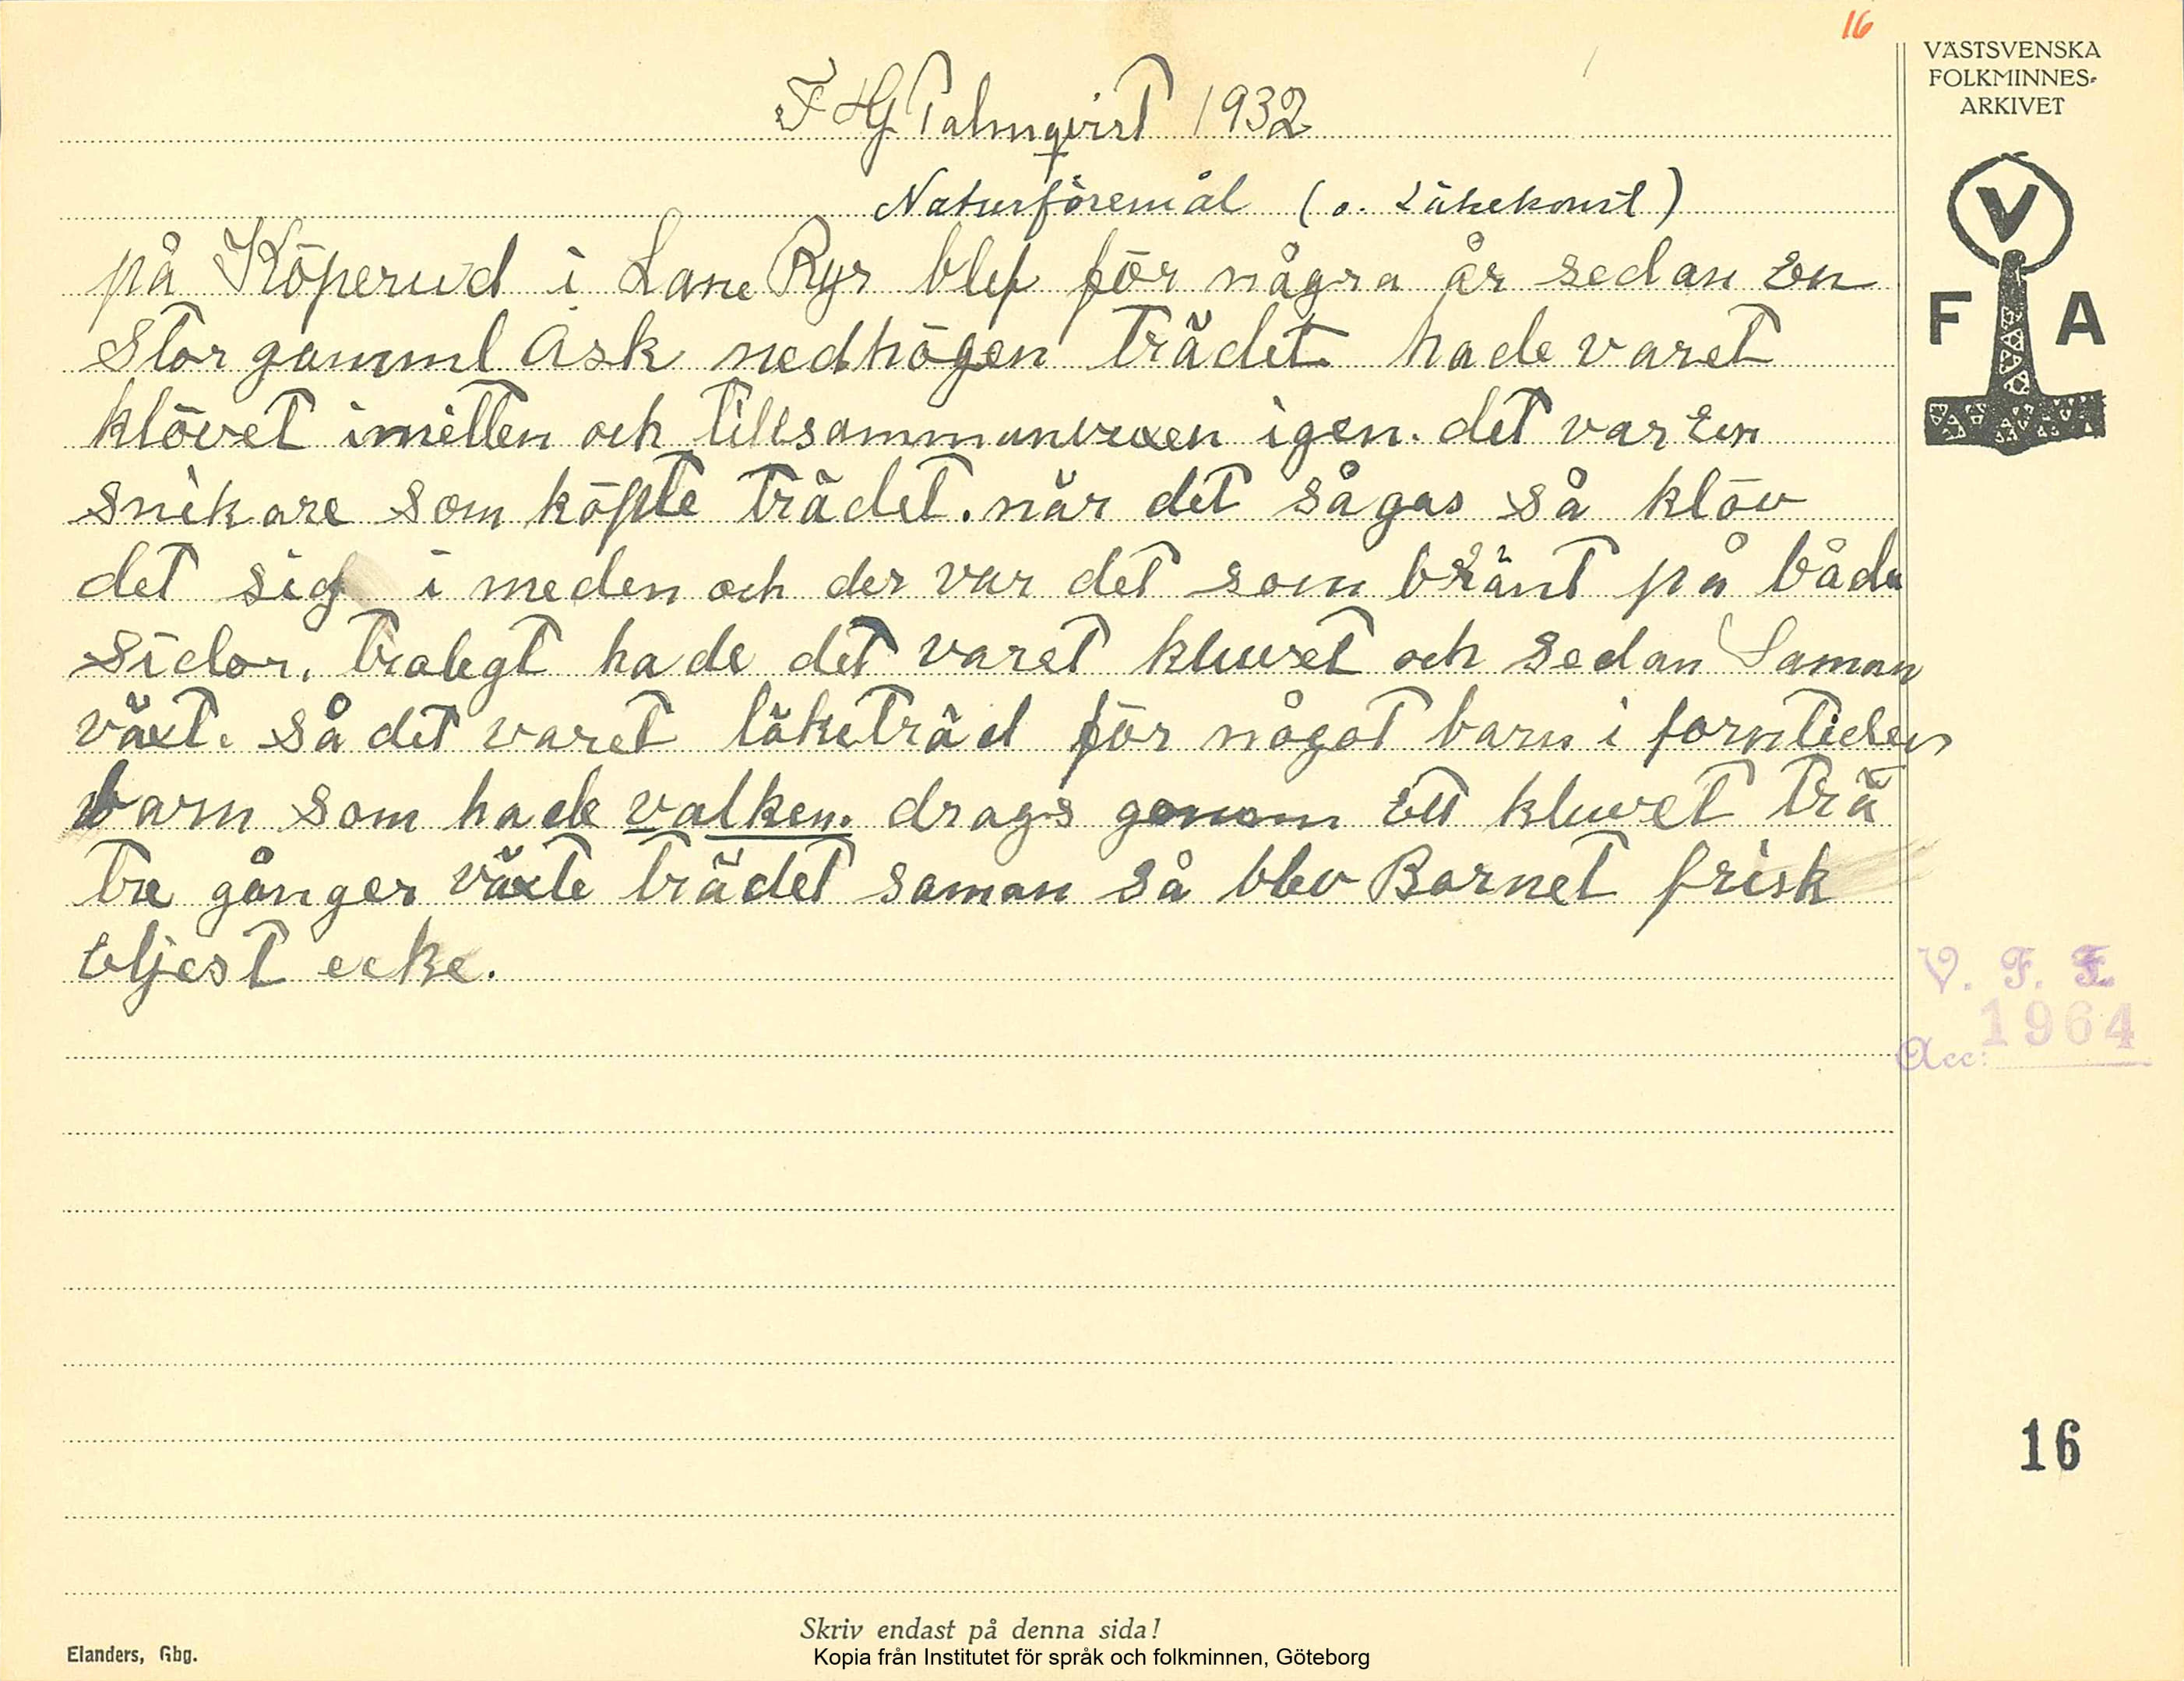 16
VÄSTSVENSKA
FOLKMINNES-
ARKIVET
F HG Palmqvist 1932
Naturföremål (o. Läkekonst)
på Köperud i Lane Ryr blef för några år sedan En
Stor gamml Ask nedhögen trädet hade varet
klövet imitten och tillsammanvuxen igen. det var En
snikare som köpte trädet. när det sågas så klöv
det sig i meden och der var det som bränt på båda
sidor. troligt hade det varet kluvet och sedan Saman
växt. så det varet läketräd för något barn i forntiden
barn som hade valken. drags genom ett kluvet trä
tre gånger växte trädet saman så blev Barnet frisk
eljest ecke.
V
F A
V. F. F.
1964
Acc:
16
Skriv endast på denna sida!
Elanders, Gbg.
Kopia från Institutet för språk och folkminnen, Göteborg